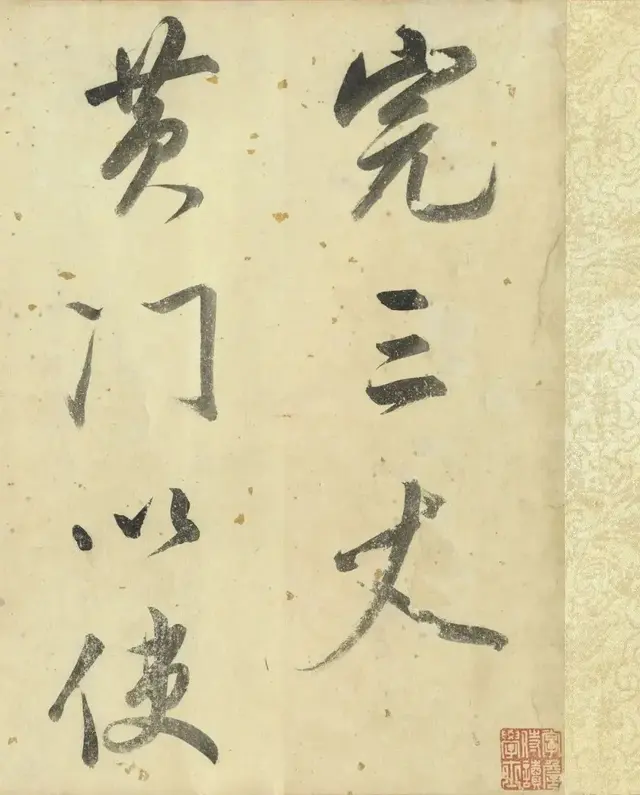 完三丈
黄门以使